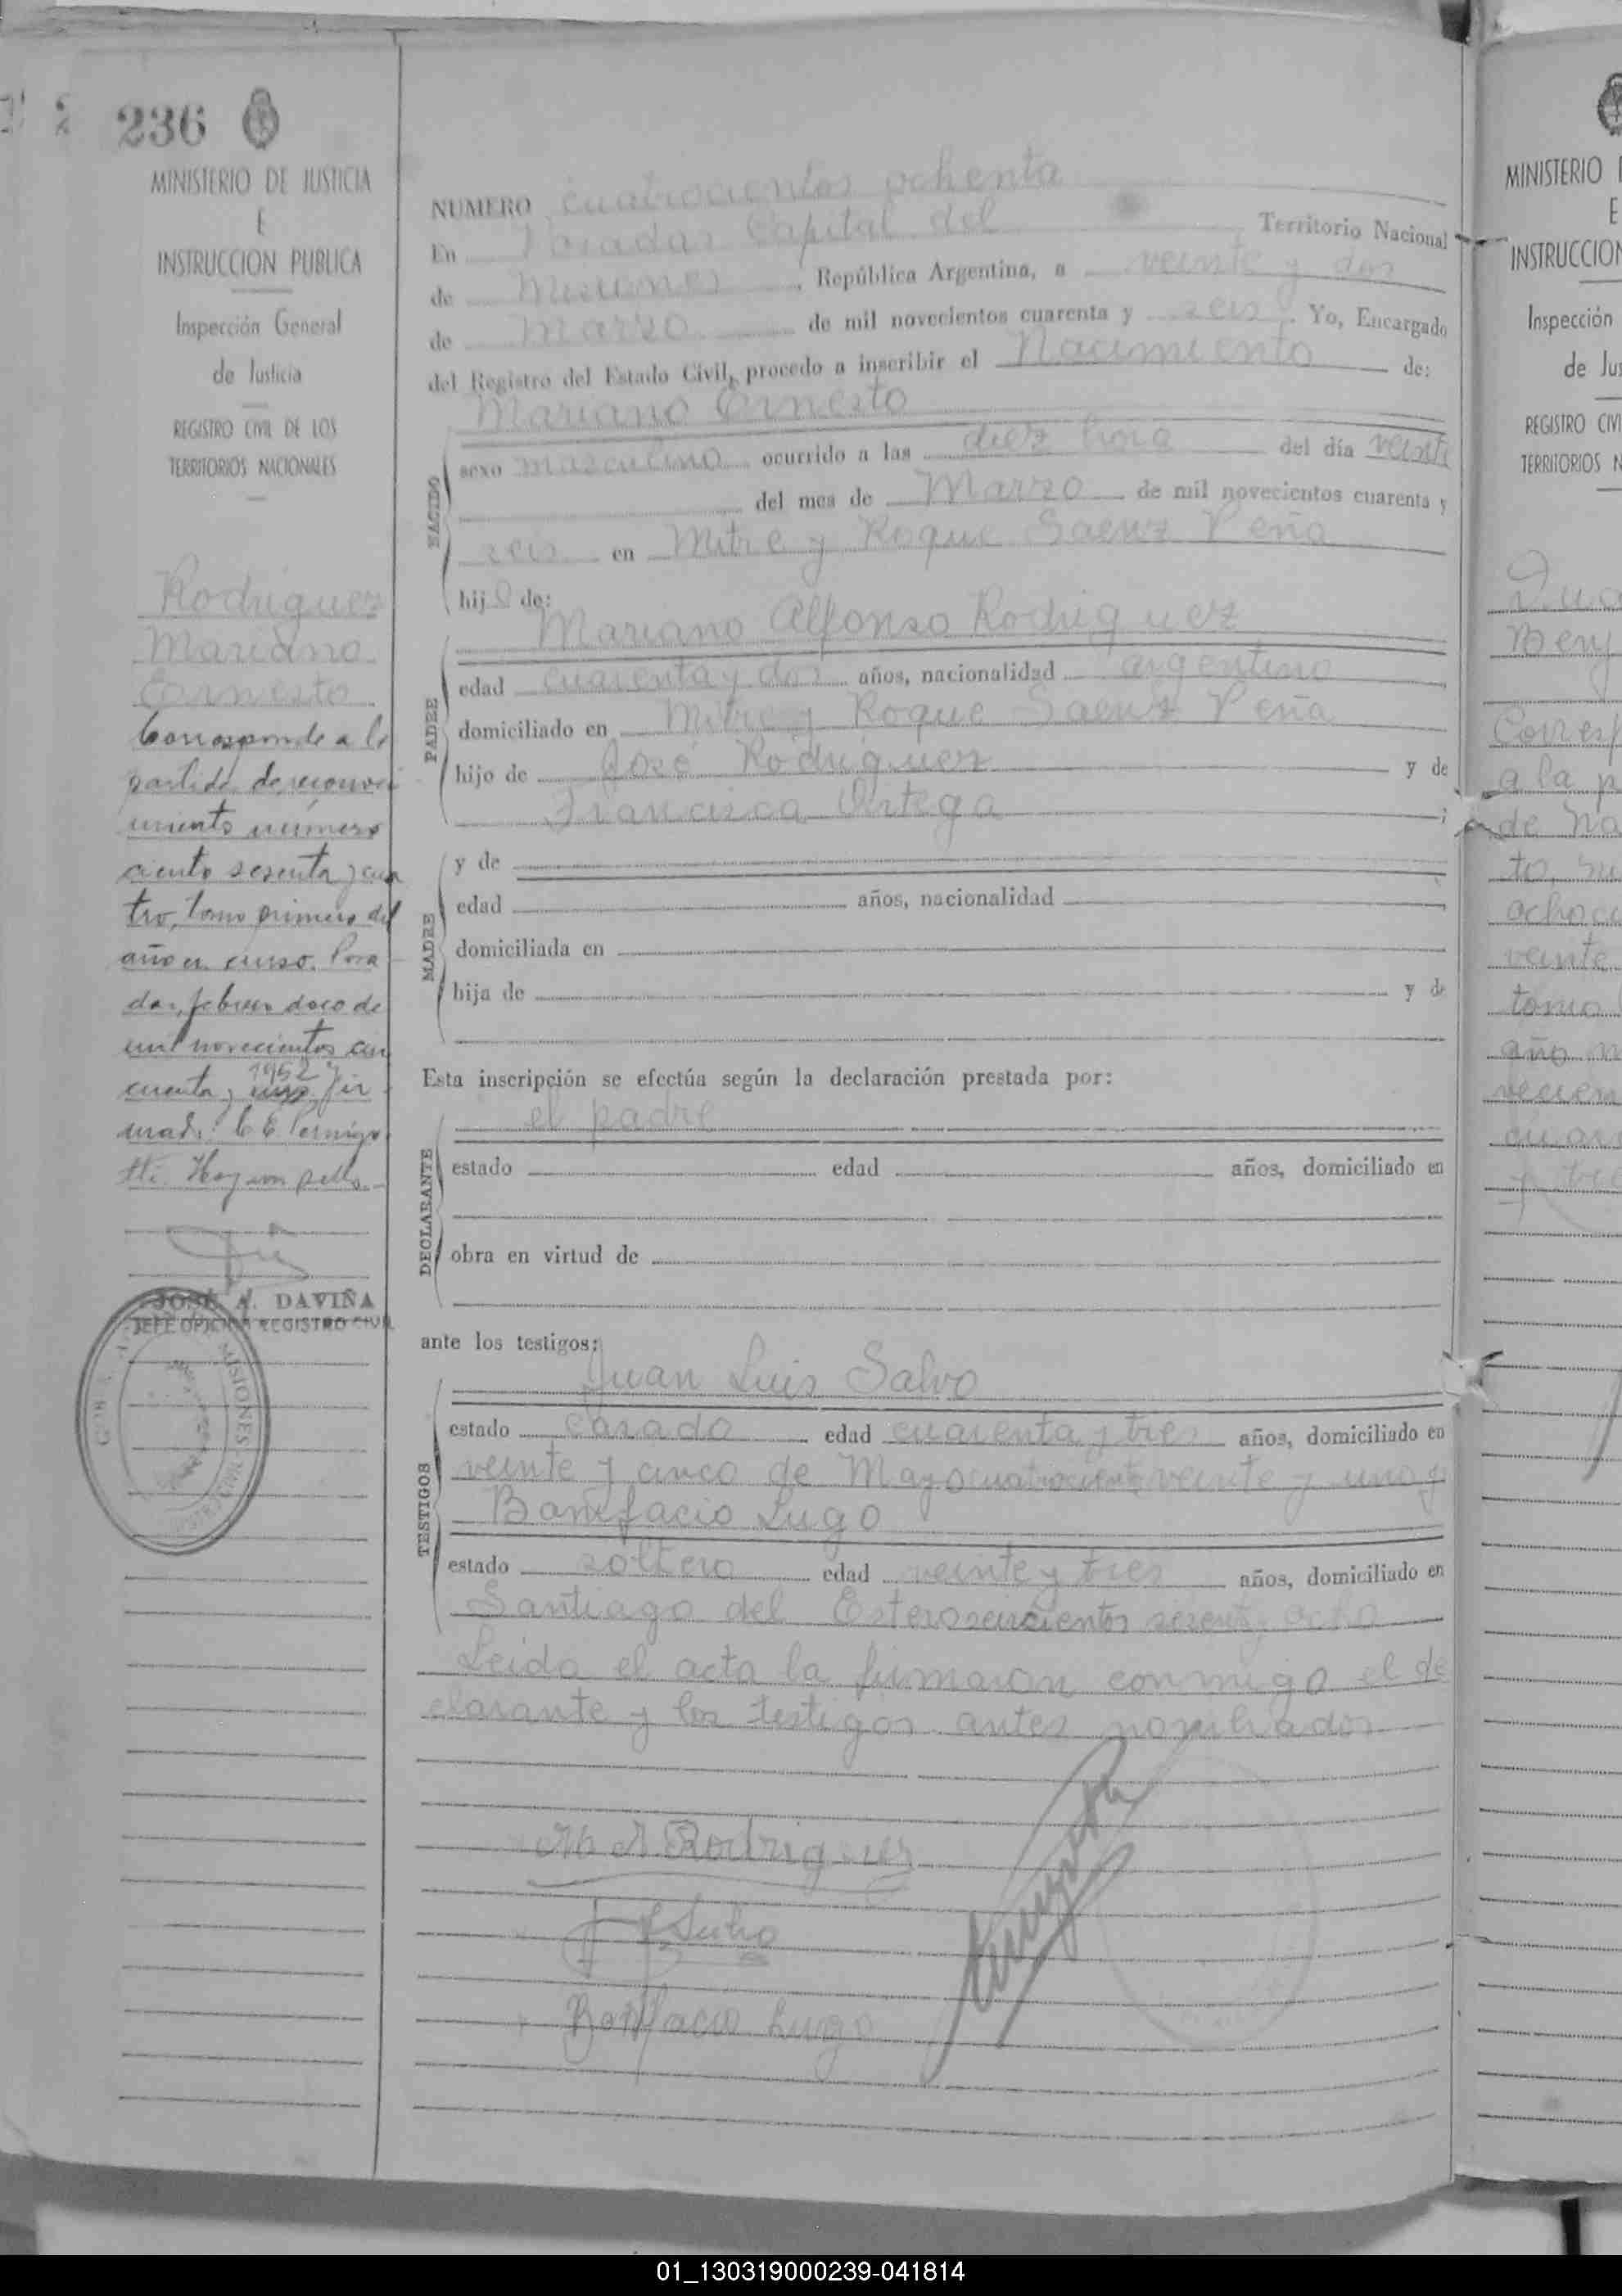 236
MINISTERIO DE JUSTICIA
E
INSTRUCCION PUBLICA
Inspección General
de Justicia
REGISTRO CIVIL DE LOS
TERRITORIOS NACIONALES
Rodriguez
Mariano
Ernesto
Corresponde a la
partida de reconoci
miento número
ciento sesenta y cua
tro, tomo primero del
año en curso. Posa
das, febrero doce de
mil novecientos cin
1952
cuenta y Fir
mado: C. E.
Hay un sello.
JOSÉ A. DAVIÑA
JEFE OFICINA REGISTRO CIVIL
MISIONES
NUMERO cuatrocientos ochenta
En Posadas Capital del Territorio Nacional
de Misiones, República Argentina, a veinte y dos
de Marzo de mil novecientos cuarenta y seis. Yo, Encargado
del Registro del Estado Civil, procedo a inscribir el Nacimiento de:
Mariano Ernesto
NACIDO
sexo masculino ocurrido a las diez hora del día veinte
del mes de Marzo de mil novecientos cuarenta y
seis en Mitre y Roque Saenz Peña
hijo de:
PADRE
Mariano Alfonso Rodriguez
edad cuarenta y dos años, nacionalidad argentino
domiciliado en Mitre y Roque Saenz Peña
hijo de José Rodriguez y de
Francisca Ortega ;
MADRE
y de
edad años, nacionalidad
domiciliada en
hija de y de
Esta inscripción se efectúa según la declaración prestada por:
el padre
DECLARANTE
estado edad años, domiciliado en
obra en virtud de
ante los testigos:
TESTIGOS
Juan Luis Salvo
estado casado edad cuarenta y tres años, domiciliado en
veinte y cinco de Mayo cuatrocientos veinte y uno y
Bonifacio Lugo
estado soltero edad veinte y tres años, domiciliado en
Santiago del Estero seiscientos sesenta y ocho
Leida el acta la firmaron conmigo el de
clarante y los testigos antes nombrados
M A Rodriguez
Bonifacio Lugo
MINISTERIO
E
INSTRUCCION
Inspección
de Jus
REGISTRO CIVI
TERRITORIOS N
Corresp
a la p
de Na
to, nu
ochoci
veinte
tomo
año m
01_130319000239-041814